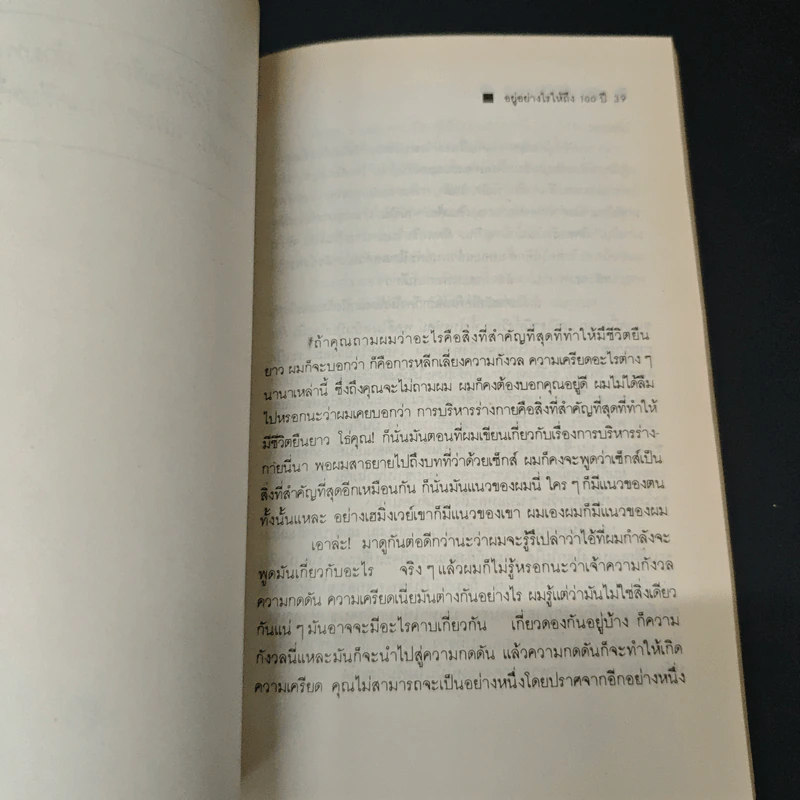 อยู่อย่างไรให้ถึง 100 ปี 39
ถ้าคุณถามผมว่าอะไรคือสิ่งที่สำคัญที่สุดที่ทำให้มีชีวิตยืน
ยาว ผมก็จะบอกว่า ก็คือการหลีกเลี่ยงความกังวล ความเครียดอะไรต่าง ๆ
นานาเหล่านี้ ซึ่งถึงคุณจะไม่ถามผม ผมก็คงต้องบอกคุณอยู่ดี ผมไม่ได้ลืม
ไปหรอกนะว่าผมเคยบอกว่า การบริหารร่างกายคือสิ่งที่สำคัญที่สุดที่ทำให้
มีชีวิตยืนยาว โธ่คุณ! ก็นั่นมันตอนที่ผมเขียนเกี่ยวกับเรื่องการบริหารร่าง-
กายนี่นา พอผมสาธยายไปถึงบทที่ว่าด้วยเซ็กส์ ผมก็คงจะพูดว่าเซ็กส์เป็น
สิ่งที่สำคัญที่สุดอีกเหมือนกัน ก็นั่นมันแนวของผมนี่ ใคร ๆ ก็มีแนวของตน
ทั้งนั้นแหละ อย่างเฮมิ่งเวย์เขาก็มีแนวของเขา ผมเองผมก็มีแนวของผม
เอาล่ะ! มาดูกันต่อดีกว่านะว่าผมจะรู้รึเปล่าว่าไอ้ที่ผมกำลังจะ
พูดมันเกี่ยวกับอะไร จริง ๆ แล้วผมก็ไม่รู้หรอกนะว่าเจ้าความกังวล
ความกดดัน ความเครียดเนี่ยมันต่างกันอย่างไร ผมรู้แต่ว่ามันไม่ใช่สิ่งเดียว
กันแน่ ๆ มันอาจจะมีอะไรคาบเกี่ยวกัน เกี่ยวดองกันอยู่บ้าง ก็ความ
กังวลนี่แหละมันก็จะนำไปสู่ความกดดัน แล้วความกดดันก็จะทำให้เกิด
ความเครียด คุณไม่สามารถจะเป็นอย่างหนึ่งโดยปราศจากอีกอย่างหนึ่ง